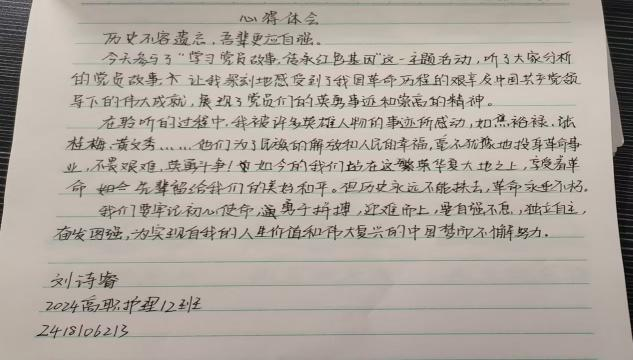 心得体会
历史不容遗忘，吾辈更应自强。
今天参与了“学习党员故事，传承红色基因”这一主题活动，听了大家分析
的党员故事，让我深刻地感受到了我国革命历程的艰辛及中国共产党领
导下的伟大成就，展现了党员们的英勇事迹和崇高的精神。
在聆听的过程中，我被许多英雄人物的事迹所感动，如焦裕禄、张
桂梅、黄文秀……他们为了民族的解放和人民的幸福，毫不犹豫地投身革命事
业，不畏艰难，英勇斗争！如今的我们站在这繁荣华夏大地之上，享受着革
命先辈留给我们的美好和平。但历史永远不能抹去，革命永垂不朽。
我们要牢记初心使命，勇于拼搏，迎难而上，要自强不息，独立自主，
奋发图强，为实现自我的人生价值和伟大复兴的中国梦而不懈努力。
刘诗睿
2024高职护理12班
2418106213